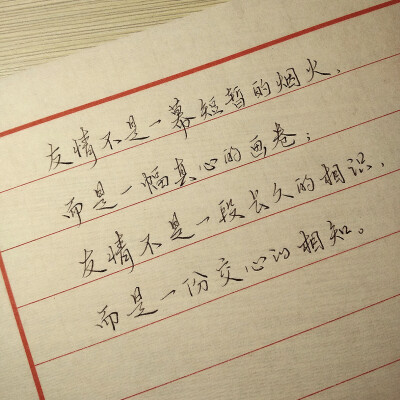 友情不是一幕短暂的烟火，
而是一幅真心的画卷；
友情不是一段长久的相识，
而是一份交心的相知。